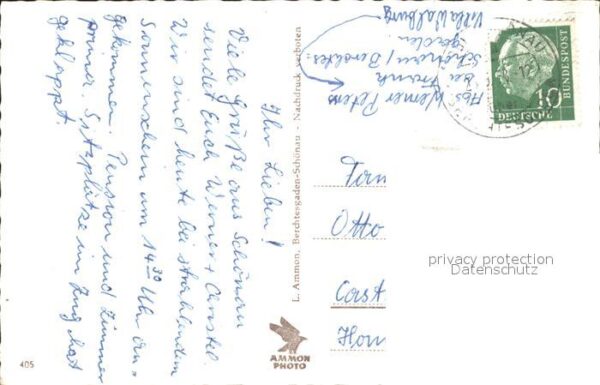 Ihr Lieben!
Viele Grüße aus Schönau
sendet Euch Werner + Christel.
Wir sind heute bei strahlendem
Sonnenschein um 14 30 Uhr an-
gekommen. Pension und Zimmer
prima. Sitzplätze im Zug hat
geklappt.
Abs. Werner Peters
bei Frank
Schönau/Berchtes-
gaden
Villa Walburg
L. Ammon, Berchtesgaden-Schönau - Nachdruck verboten
DEUTSCHE
BUNDESPOST
10
Fam
Otto
Cast
Hon
privacy protection
Datenschutz
AMMON
PHOTO
405